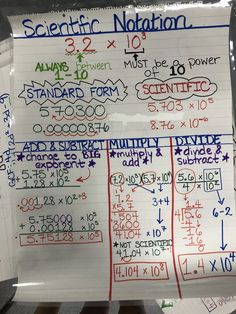 Scientific Notation
3.2 × 10³
ALWAYS between
1-10
MUST be a power
of 10
STANDARD FORM
SCIENTIFIC
5,703,00
5.703 × 10⁵
0.00000876
8.76 × 10⁻⁶
ADD & SUBTRACT
★change to BIG
exponent★
5.75 × 10⁵
1.28 × 10²
.00128 × 10²⁺³
5.75000 × 10⁵
+ 0.00128 × 10⁵
5.75128 × 10⁵
MULTIPLY
★multiply
& add★
3+4
★NOT SCIENTIFIC
41.04 × 10⁷
4.104 × 10⁸
DIVIDE
★divide &
subtract★
5.6 × 10⁶
4 × 10²
6-2
1.4
4 5.6
-4
16
-16
0
1.4 × 10⁴